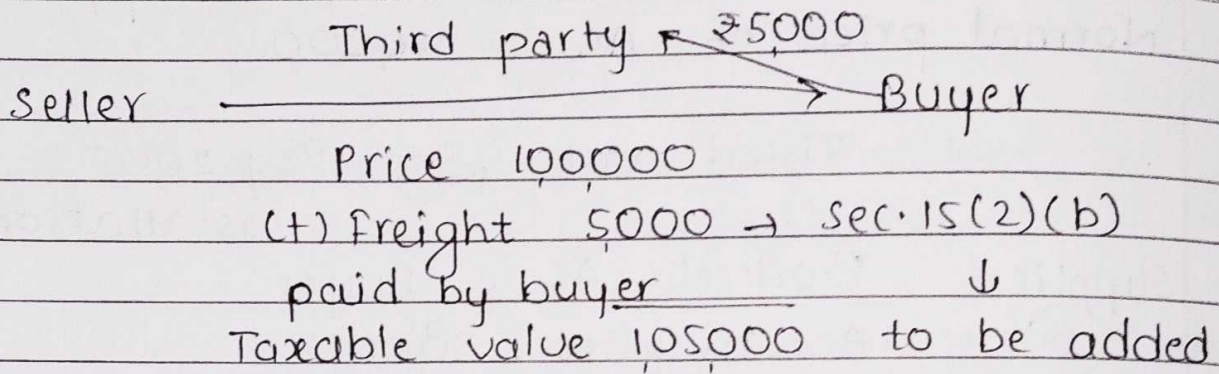 Third party ₹5000
Seller Buyer
Price 100000
(+) Freight 5000 → Sec. 15(2)(b)
paid by buyer ↓
Taxable value 105000 to be added